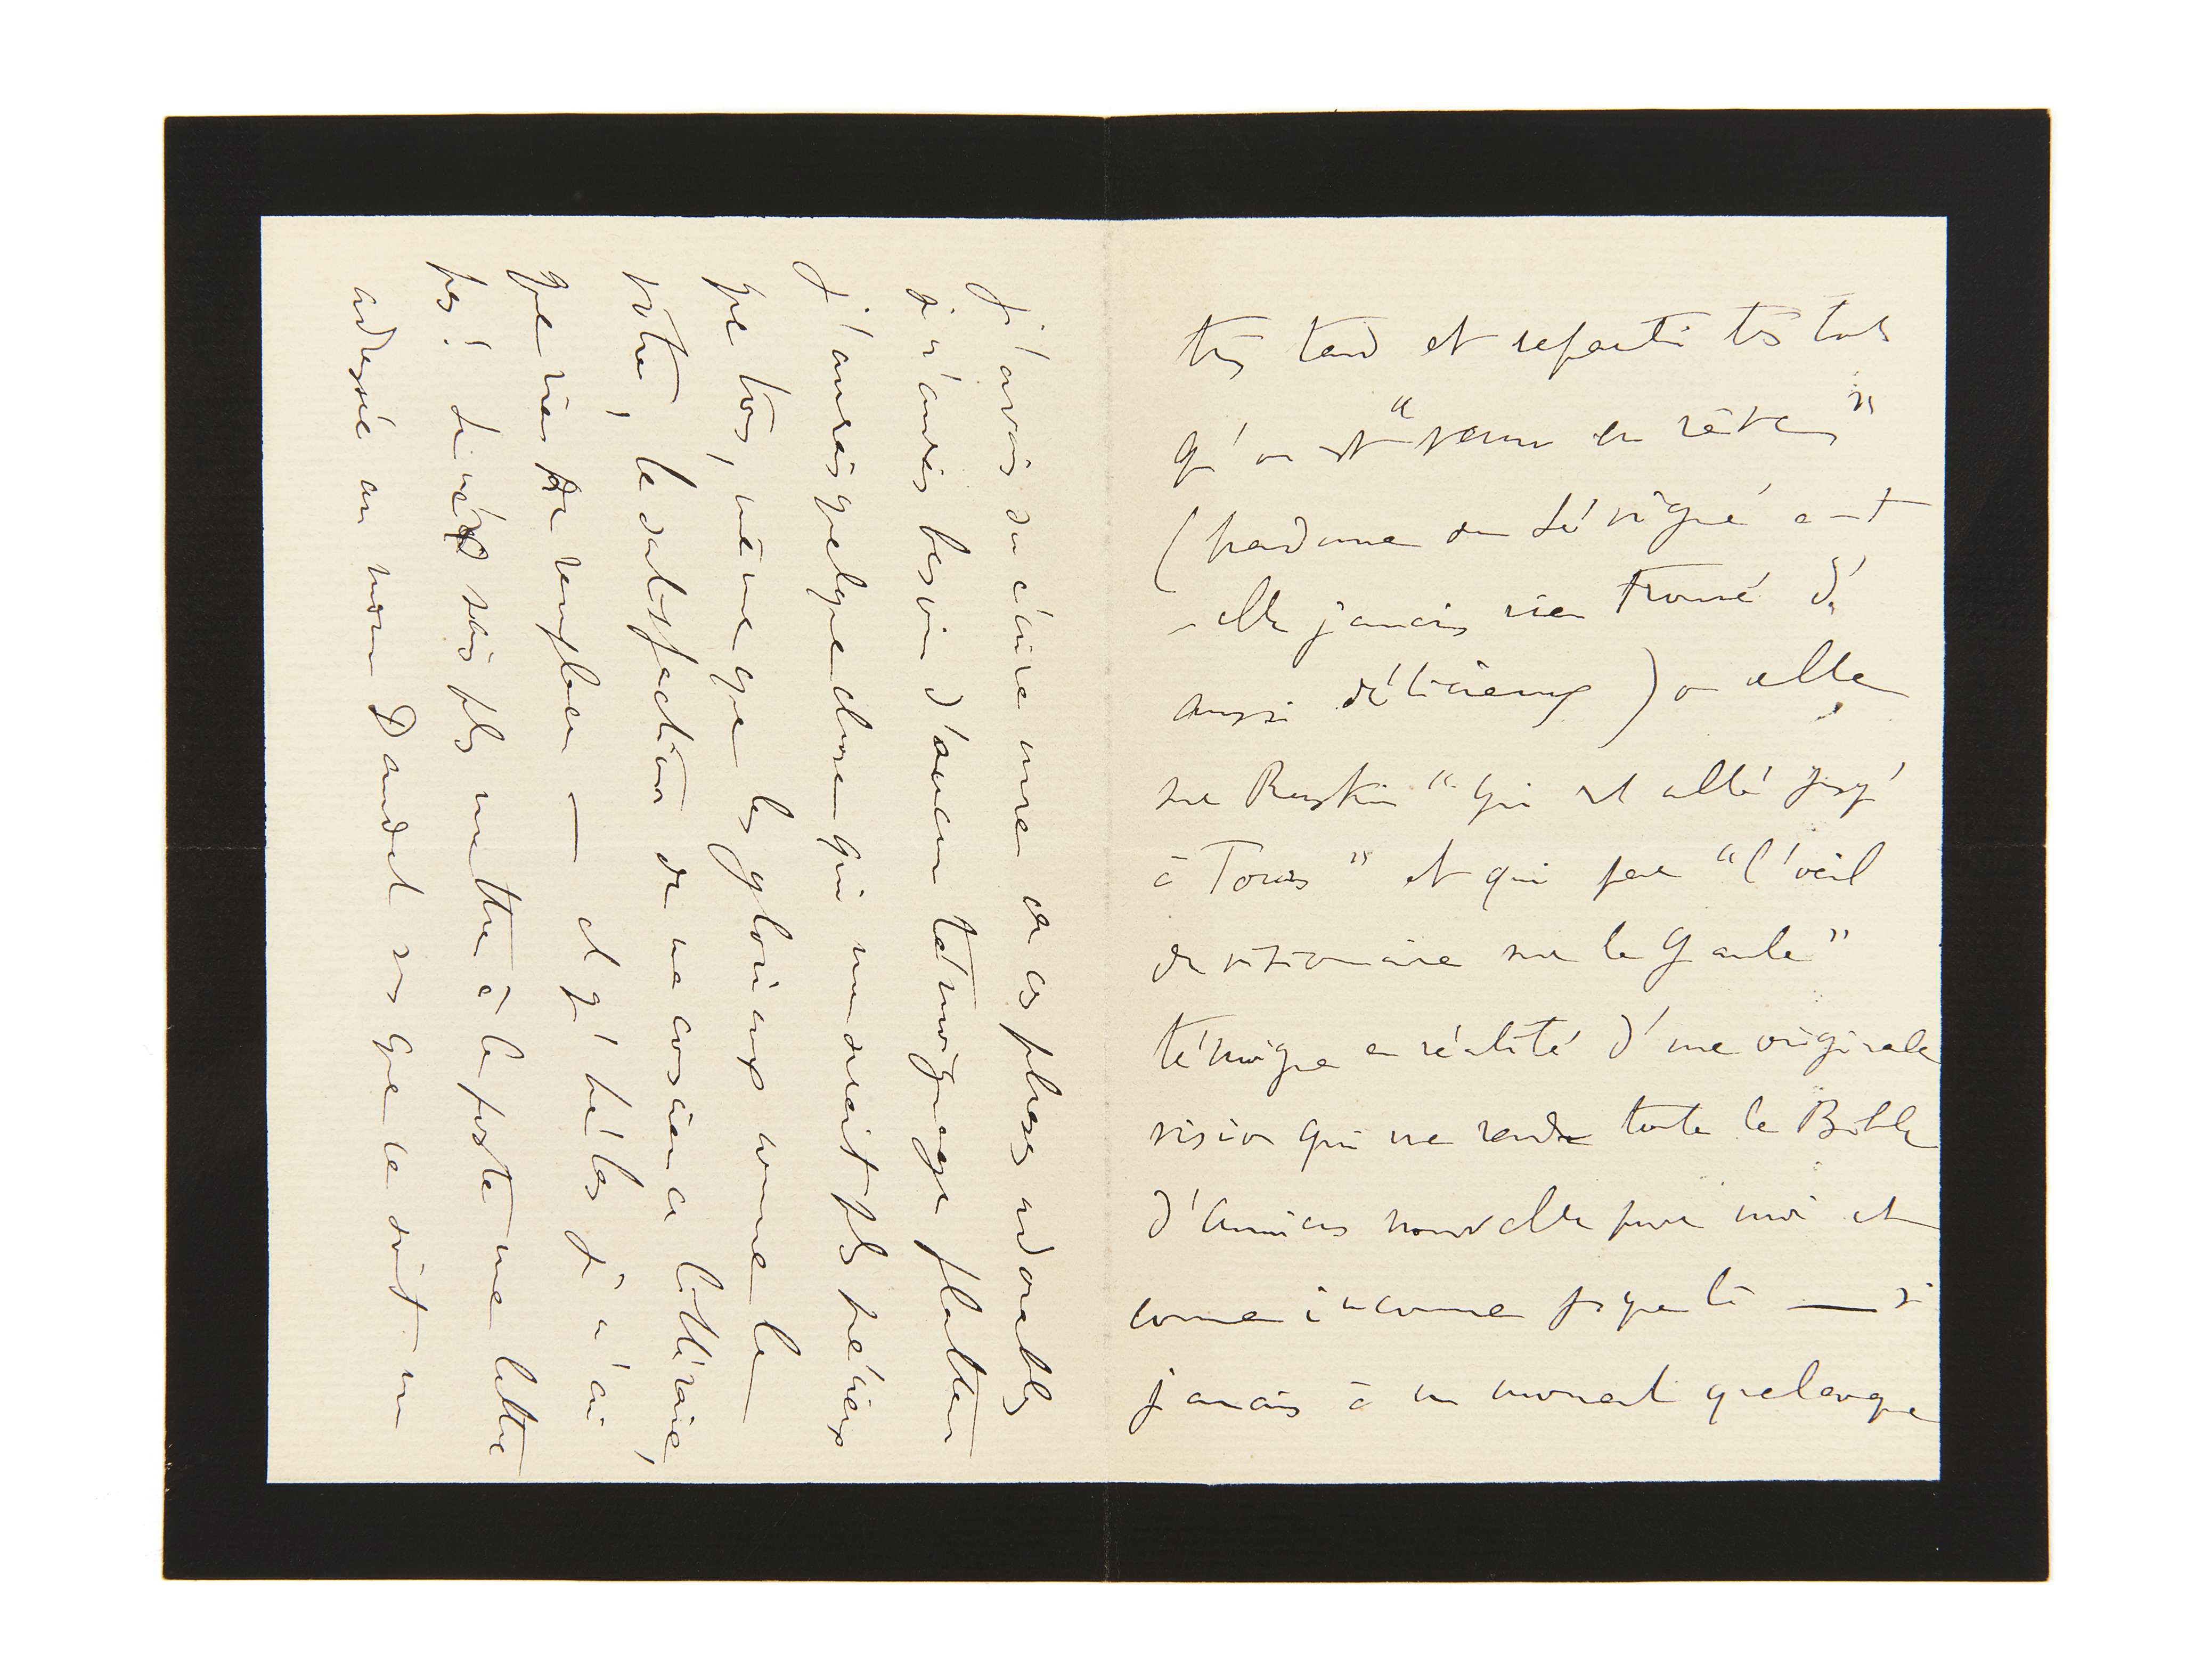 très tard et reparti très tôt
qu'on est "venu en rêve"
(Madame de Sévigné a-t
-elle jamais rien trouvé d'
aussi délicieux) ou celle
sur Ruskin "qui est allé jusqu'
à Tours" et qui jeta "l'œil
de visionnaire sur la Gaule"
témoigne en réalité d'une originale
vision qui me rendra toute la Bible
d'Amiens nouvelle pour moi et
comme inconnue jusque là — si
jamais à un moment quelconque
j'avais su écrire une de ces phrases adorables
je n'aurais besoin d'aucun témoignage flatteur
j'aurais quelque chose qui me serait plus précieux
que tous, même que les glorieux comme le
vôtre, la satisfaction de ma conscience littéraire,
que rien ne remplace — et qu'hélas je n'ai
pas! Si vous mettre à la poste une lettre
adressée au nom Daudet sans que ce soit un